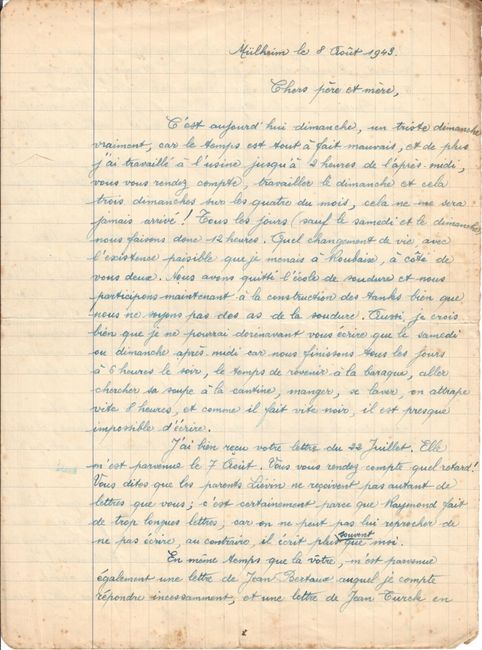 Mülheim le 8 Août 1943.
Chers père et mère,
C'est aujourd'hui dimanche, un triste dimanche
vraiment, car le temps est tout à fait mauvais, et de plus
j'ai travaillé à l'usine jusqu'à 2 heures de l'après-midi,
vous vous rendez compte, travailler le dimanche et cela
trois dimanches sur les quatre du mois, cela ne me sera
jamais arrivé! Tous les jours (sauf le samedi et le dimanche)
nous faisons donc 12 heures. Quel changement de vie, avec
l'existence paisible que je menais à Roubaix, à côté de
vous deux. Nous avons quitté l'école de soudure et nous
participons maintenant à la construction des tanks bien que
nous ne soyons pas des as de la soudure. Aussi, je crois
bien que je ne pourrai dorénavant vous écrire que le samedi
ou dimanche après-midi car nous finissons tous les jours
à 6 heures le soir, le temps de revenir à la baraque, aller
chercher sa soupe à la cantine, manger, se laver, on attrape
vite 8 heures, et comme il fait vite noir, il est presque
impossible d'écrire.
J'ai bien reçu votre lettre du 22 Juillet. Elle
m'est parvenue le 7 Août. Vous vous rendez compte quel retard!
Vous dites que les parents Liévin ne reçoivent pas autant de
lettres que vous; c'est certainement parce que Raymond fait
de trop longues lettres, car on ne peut pas lui reprocher de
ne pas écrire, au contraire, il écrit plus souvent que moi.
En même temps que la vôtre, m'est parvenue
également une lettre de Jean Bertaux auquel je compte
répondre incessamment, et une lettre de Jean Turck en